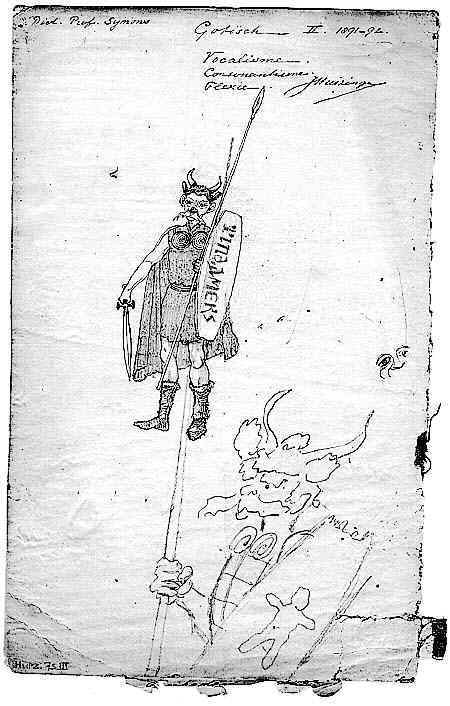 Dict. Prof. Symons
Gotisch II. 1891-92.
Vocalisme.
Consonantisme.
Flexie. JHuizinga
Huiz. 75 III